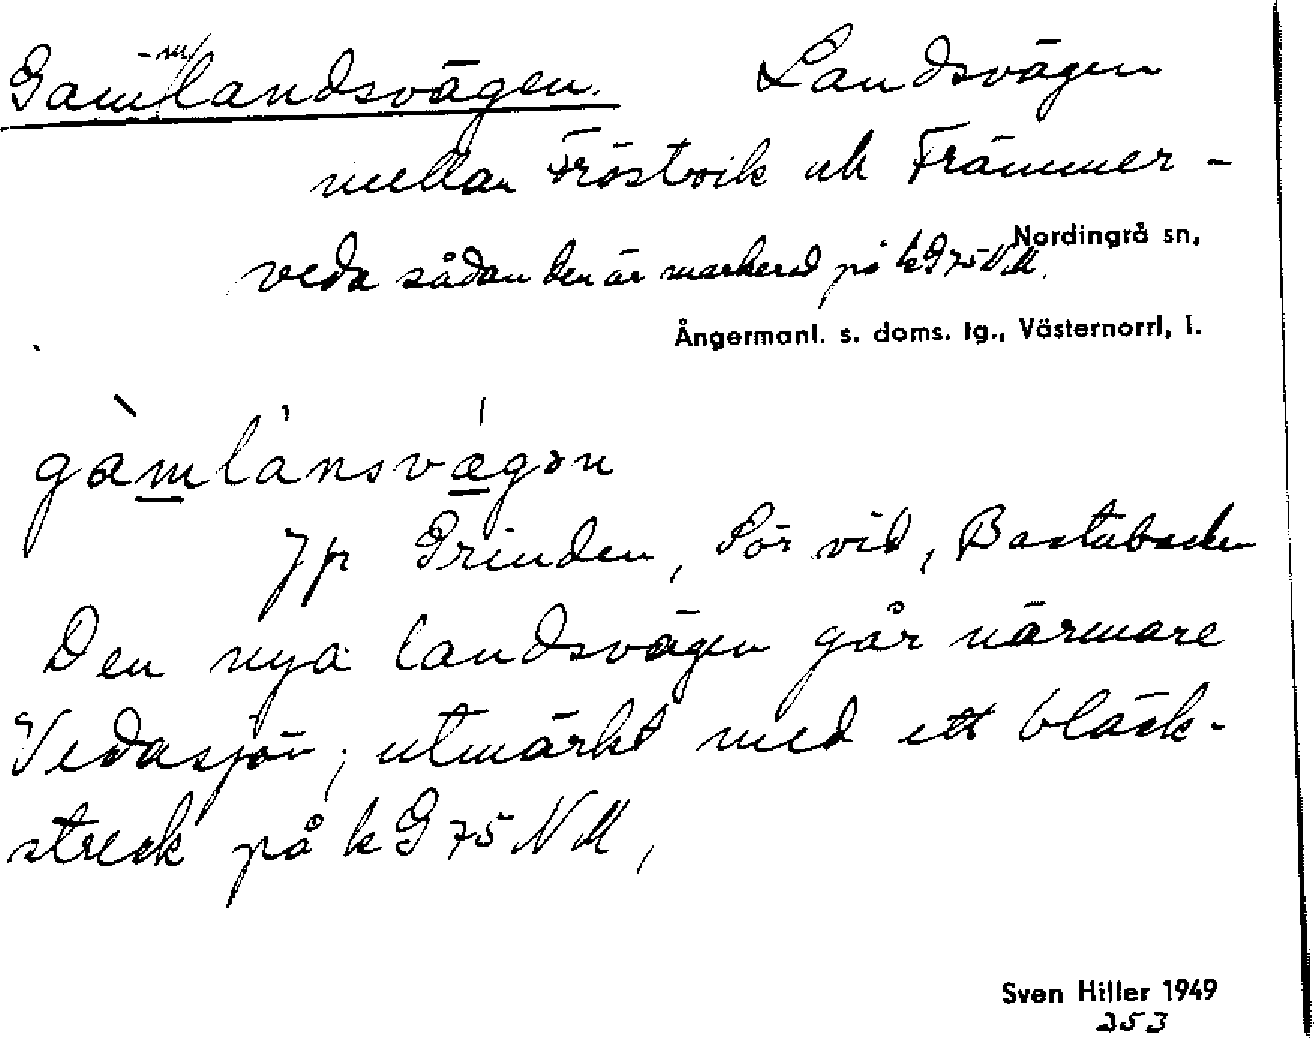 Gamlandsvägen. Landsvägen
-m/
mellan Fröstvik och Främmer-
veda sådan den är markerad på kG75NM.
Nordingrå sn,
Ångermanl. s. doms. tg., Västernorrl. l.
gàmlànsvǽgən
Jfr Grinden, Sör vid, Bastubacken
Den nya landsvägen går närmare
Vedasjön; utmärkt med ett bläck-
streck på kG75NM,
Sven Hiller 1949
253